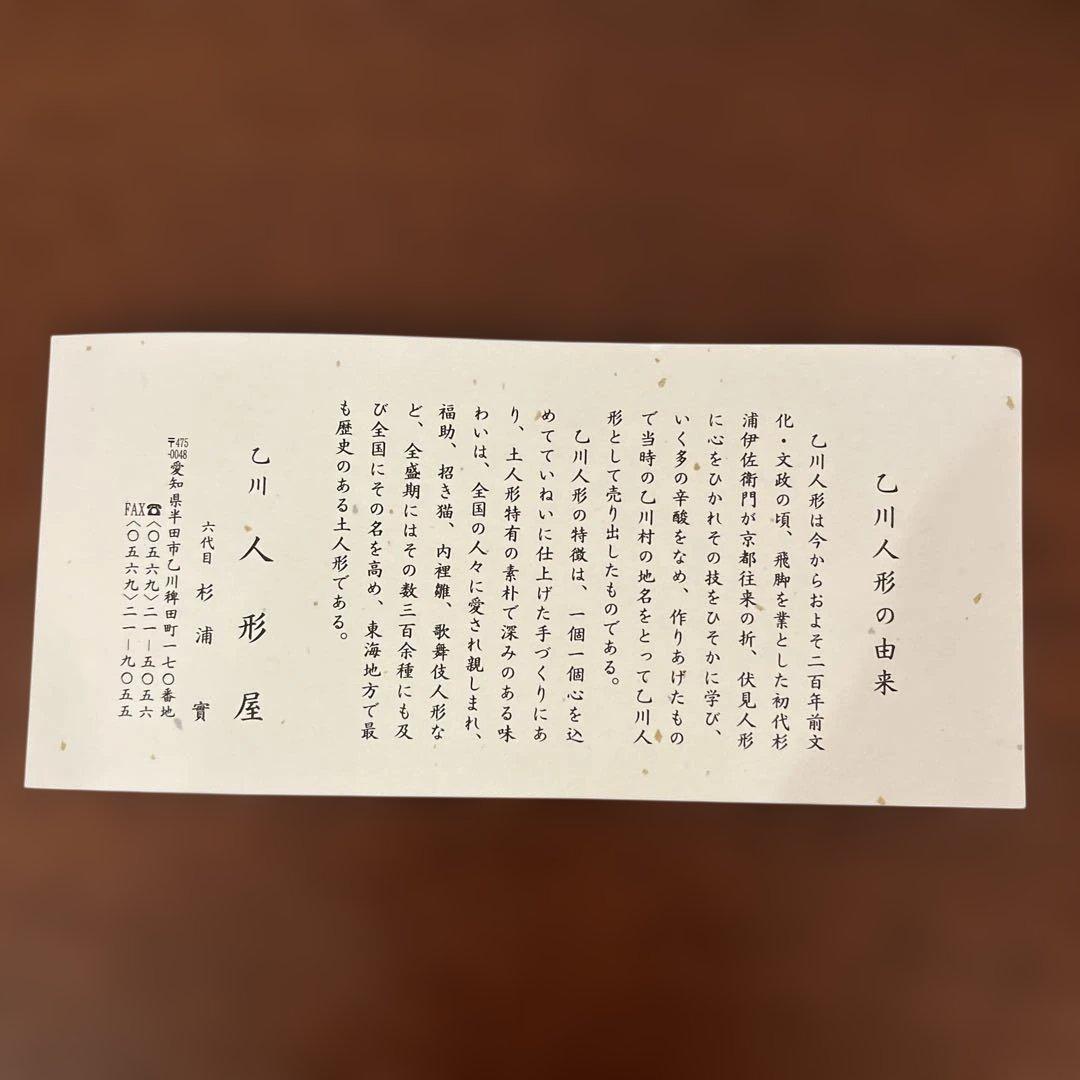 乙川人形の由来
乙川人形は今からおよそ二百年前文
化・文政の頃、飛脚を業とした初代杉
浦伊佐衛門が京都往来の折、伏見人形
に心をひかれその技をひそかに学び、
いく多の辛酸をなめ、作りあげたもの
で当時の乙川村の地名をとって乙川人
形として売り出したものである。
乙川人形の特徴は、一個一個心を込
めてていねいに仕上げた手づくりにあ
り、土人形特有の素朴で深みのある味
わいは、全国の人々に愛され親しまれ、
福助、招き猫、内裡雛、歌舞伎人形な
ど、全盛期にはその数三百余種にも及
び全国にその名を高め、東海地方で最
も歴史のある土人形である。
乙川人形屋
六代目 杉浦實
〒475-0048 愛知県半田市乙川稗田町一七〇番地
☎〈〇五六九〉二一―五〇五六
FAX〈〇五六九〉二一―九〇五五